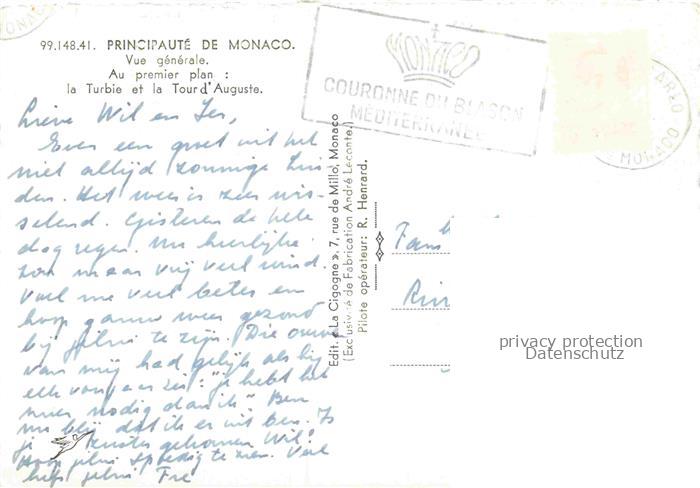 99.148.41. PRINCIPAUTÉ DE MONACO.
Vue générale.
Au premier plan :
la Turbie et la Tour d'Auguste.
MONACO
COURONNE DU BLASON
MÉDITERRANÉE
MONACO
Lieve Wil en
Even een groet uit het
niet altijd zonnige Zui-
den. Het weer is zeer wis-
selend. Gisteren de hele
dag regen. Nu heerlijke
zon maar vrij veel wind.
Voel me veel beter en
hoop gauw weer gezond
bij jullie te zijn. Die
van mij had gelijk als hij
elk voorjaar zei: "je hebt het
meer nodig dan ik". Ben
nu blij dat ik er uit ben. Is
je gekomen Wil?
Hoop jullie spoedig te zien. Veel
liefs jullie
Edit. « La Cigogne », 7, rue de Millo, Monaco
(Exclusivité de Fabrication André Leconte.)
Pilote opérateur : R. Henrard.
Fam
privacy protection
Datenschutz